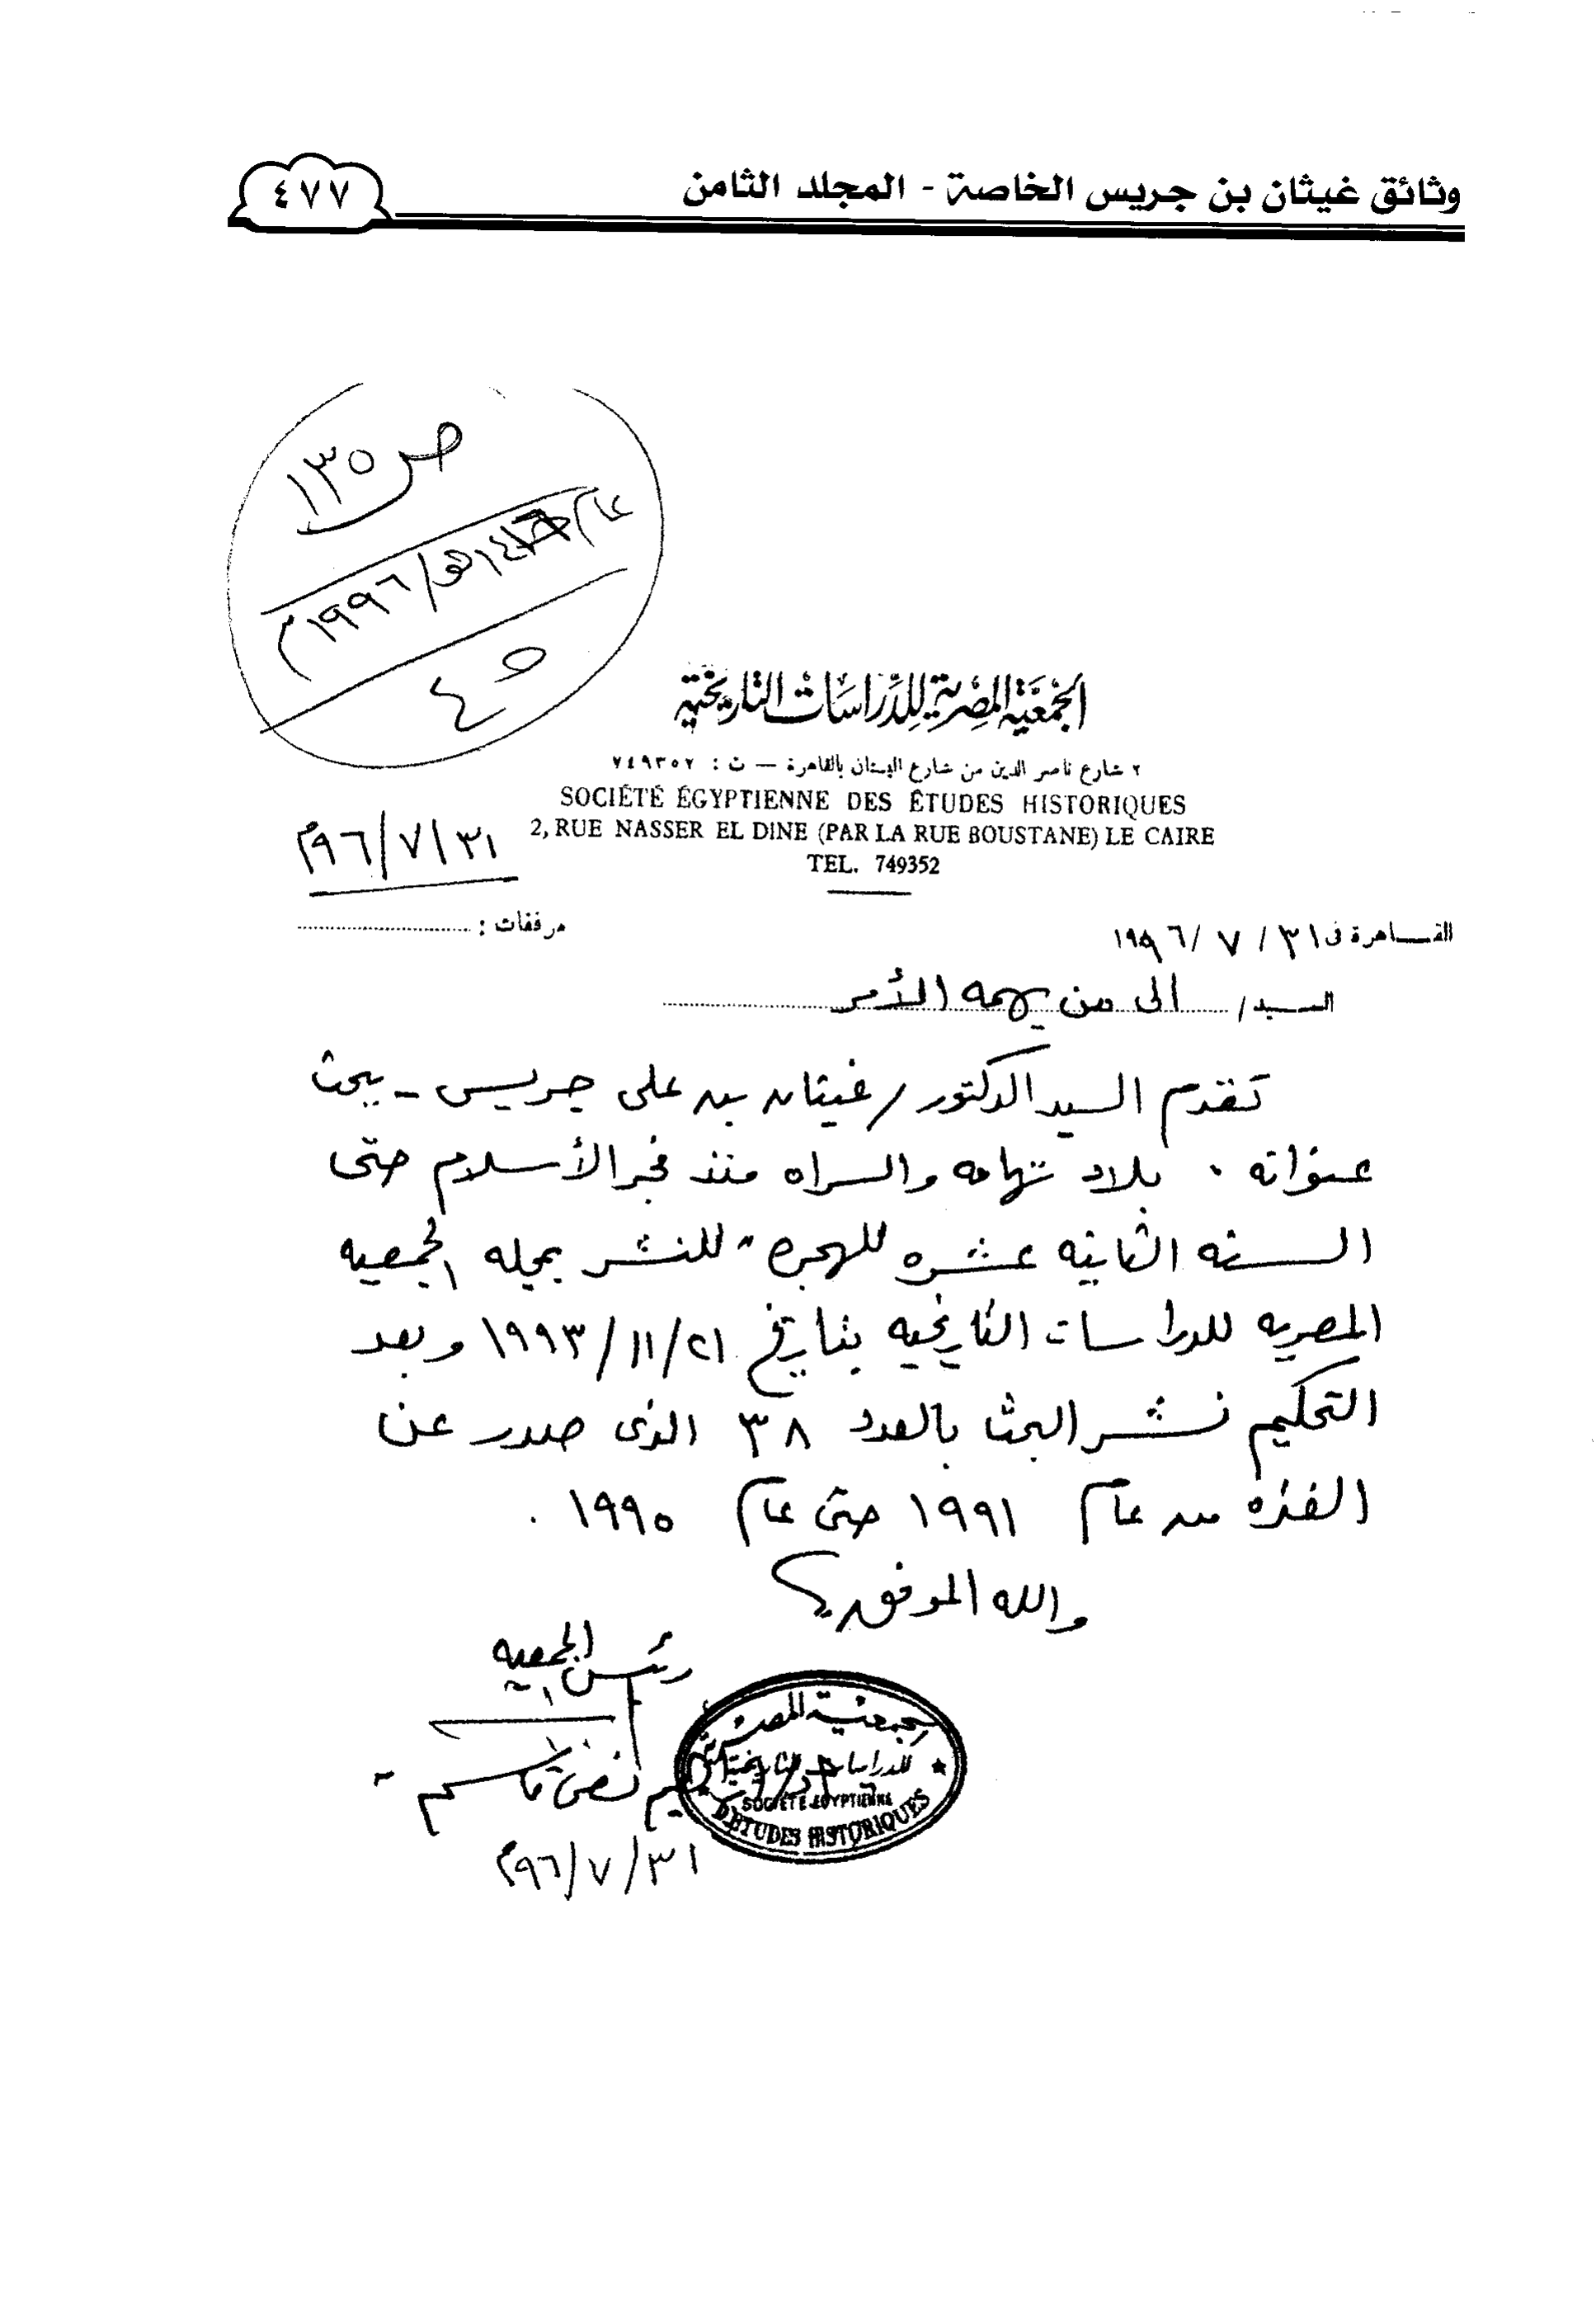 وثائق غيثان بن جريس الخاصة - المجلد الثامن
٤٧٧
ص ١٣٥
١٩٩٦م
الجمعية المصرية للدراسات التاريخية
٢ شارع ناصر الدين من شارع البستان بالقاهرة — ت : ٧٤٩٣٥٢
SOCIÉTÉ ÉGYPTIENNE DES ÉTUDES HISTORIQUES
2, RUE NASSER EL DINE (PAR LA RUE BOUSTANE) LE CAIRE
TEL. 749352
٣١/٧/٩٦م
القاهرة فى ٣١/ ٧ /١٩٩٦
مرفقات :
السيد/ الى من يهمه الأمر
تقدم السيد الدكتور / غيثان بن على جريس - ببحث
عنوانه " بلاد تهامه والسراه منذ فجر الأسلام حتى
السنه الثانيه عشره للهجره " للنشر بمجله الجمعيه
المصريه للدراسات التاريخيه بتاريخ ٢١/١١/١٩٩٣ وبعد
التحكيم نشر البحث بالعدد ٣٨ الذى صدر عن
الفتره من عام ١٩٩١ حتى عام ١٩٩٥ .
والله الموفق
رئيس الجمعيه
قاسم
٣١/٧/٩٦م
الجمعية المصرية
للدراسات التاريخية
SOCIÉTÉ EGYPTIENNE
D'ETUDES HISTORIQUES